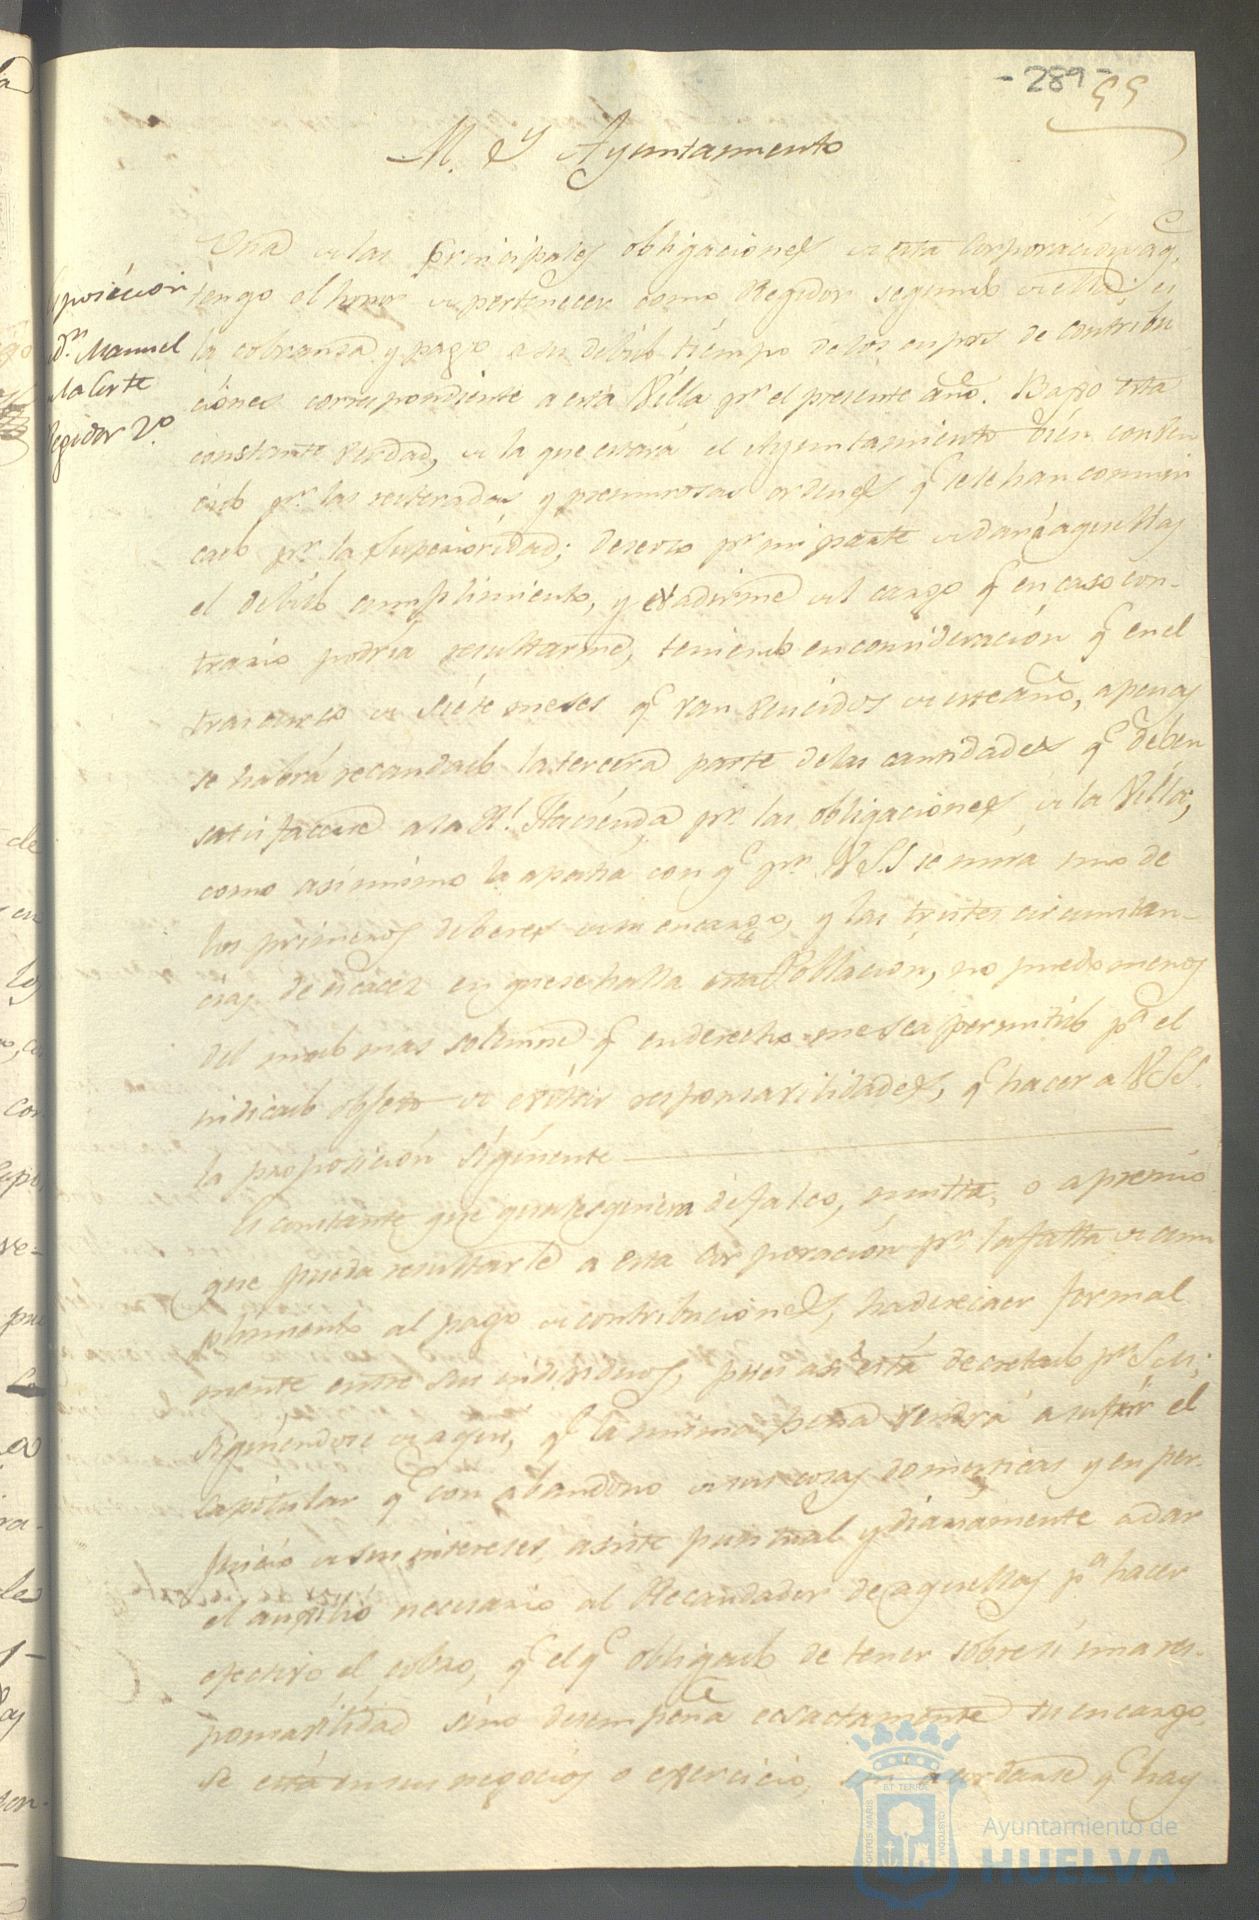 -289-
55
M. Y Ayuntamiento
Exposicion
d.n Manuel
Malarte
Regidor 2.o
Una de las principales obligaciones de esta Corporación, a q.e
tengo el honor de pertenecer como Regidor segundo de ella es
la cobranza y pago a su debido tiempo de los cupos de contribu
ciones correspondiente a esta Villa p.r el presente año. Bajo esta
constante verdad, de la que estará el Ayuntamiento bien conben
cido p.r las reiteradas y premurosas ordenes q.e se le han comuni
cado p.r la Superioridad; deseoso p.r mi parte de dar á aquellas
el debido cumplimiento, y evadirme del cargo q.e en caso con-
trario podria resultarme, teniendo en consideración q.e en el
trascurso de siete meses q.e van vencidos de este año, apenas
se habrá recaudado la tercera parte de las cantidades q.e deben
satisfacerse a la R.l Hacienda p.r las obligaciones de la Villa;
como asi mismo la apatia con q.e p.r VSS se mira uno de
los primeros deberes de su encargo, y las tristes circunstan-
cias de escacez en que se halla esta Poblacion, no puedo menos
del modo mas solemne q.e en derecho me sea permitido p.a el
indicado objeto de evitar responsavilidades, q.e hacer a VSS.
la proposición siguiente
Es constante que qualesquiera defalco, multa, o apremio
que pueda resultarle a esta Corporación p.r la falta de cum
plimiento al pago de contribuciones, ha de recaer formal
mente entre sus individuos, pues asi está decretado p.r S.M.;
siguiendose de aqui, q.e la misma pena vendrá a sufrir el
Capitular q.e con abandono de sus cosas domesticas y en per-
juicio de sus intereses, asiste puntual y diariamente a dar
el auxilio necesario al Recaudador de aquellas p.a hacer
efectivo el cobro, q.e el q.e obligado de tener sobre si una res-
ponsavilidad sino desempeña ecsactamente su encargo,
se está en sus negocios o exercicio, sin acordarse q.e hay
Ayuntamiento de
HUELVA